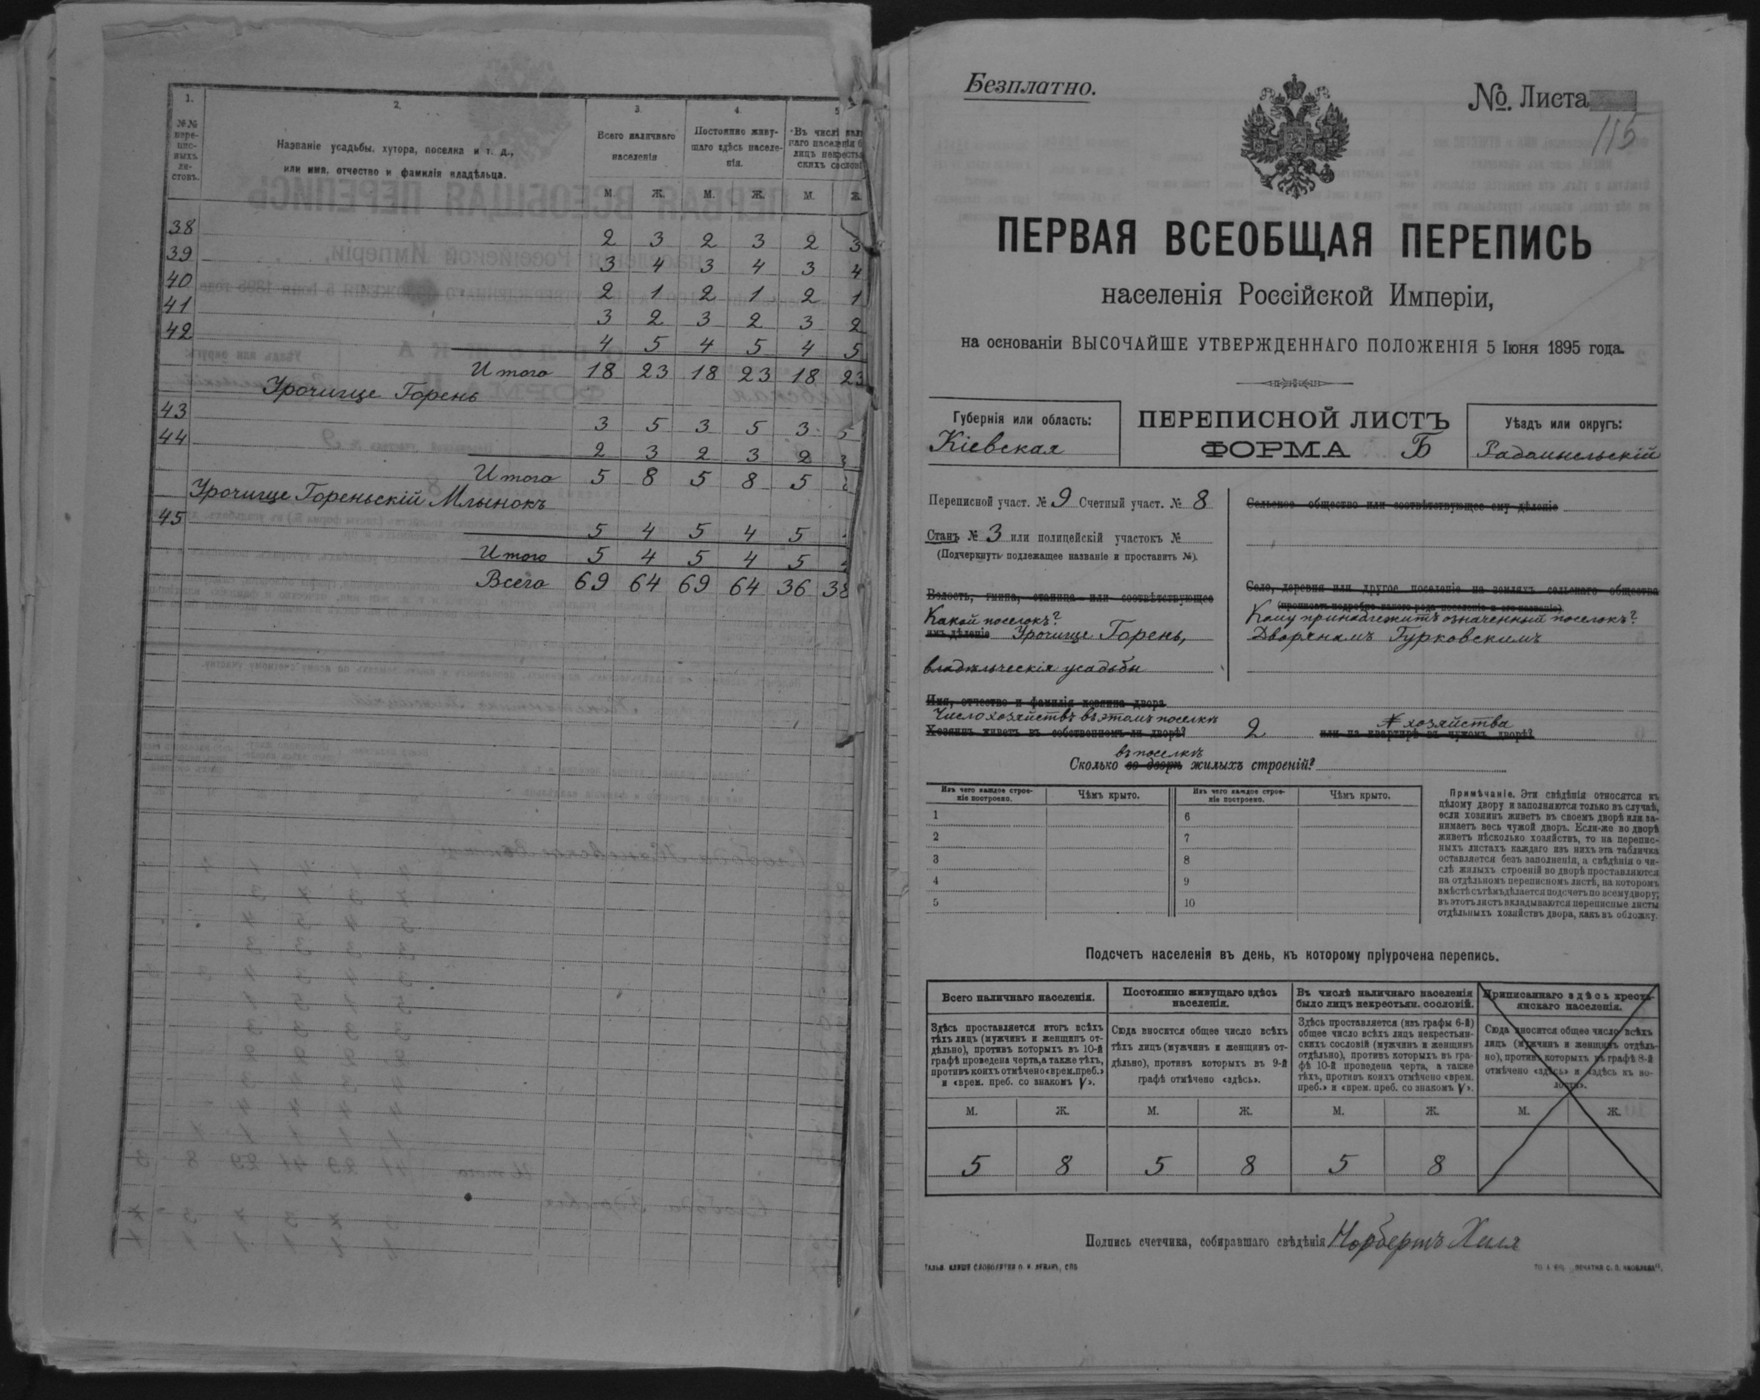 1.
№№ пере-
пис-
ныхъ
ли-
стовъ.
2.
Названіе усадьбы, хутора, поселка и т. д.,
или имя, отчество и фамилія владѣльца.
3
Всего наличнаго
населенія
4
Постоянно живу-
щаго здѣсь населе-
нія.
5
Въ числѣ
лицъ
М. Ж. М. Ж. М. Ж.
38 2 3 2 3 2 3
39 3 4 3 4 3 4
40 2 1 2 1 2 1
41 3 2 3 2 3 2
42 4 5 4 5 4 5
Итого 18 23 18 23 18 23
Урочище Горень
43 3 5 3 5 3 5
44 2 3 2 3 2 3
Итого 5 8 5 8 5
Урочище Гореньскій Млынокъ
45 5 4 5 4 5
Итого 5 4 5 4 5
Всего 69 64 69 64 36 38
Безплатно.
№. Листа
115
ПЕРВАЯ ВСЕОБЩАЯ ПЕРЕПИСЬ
населенія Россійской Имперіи,
на основаніи ВЫСОЧАЙШЕ УТВЕРЖДЕННАГО ПОЛОЖЕНІЯ 5 Іюня 1895 года.
Губернія или область:
Кіевская
ПЕРЕПИСНОЙ ЛИСТЪ
ФОРМА Б
Уѣздъ или округъ:
Радомысльскій
Переписной участ. № 9 Счетный участ. № 8
Станъ № 3 или полицейскій участокъ №
(Подчеркнуть подлежащее названіе и проставить №).
Волость, гмина, станица или соотвѣтствующее
Какой поселокъ?
имъ дѣленіе Урочище Горень,
владѣльческія усадьбы
Сельское общество или соотвѣтствующее ему дѣленіе
Село, деревня или другое поселеніе на земляхъ сельскаго общества
(прописать подробно какого рода поселеніе и его названіе)
Кому принадлежитъ означенный поселокъ?
Дворянамъ Гурковскимъ
Имя, отчество и фамилія хозяина двора
Число хозяйствъ въ этомъ поселкѣ
Хозяинъ живетъ въ собственномъ ли дворѣ? 2 или на квартирѣ въ чужомъ дворѣ?
хозяйства
въ поселкѣ
Сколько во дворѣ жилыхъ строеній?
Изъ чего каждое строе-
ніе построено.
Чѣмъ крыто.
Изъ чего каждое строе-
ніе построено.
Чѣмъ крыто.
1 6
2 7
3 8
4 9
5 10
Примѣчаніе. Эти свѣдѣнія относятся къ
цѣлому двору и заполняются только въ случаѣ,
если хозяинъ живетъ въ своемъ дворѣ или за-
нимаетъ весь чужой дворъ. Если-же во дворѣ
живетъ нѣсколько хозяйствъ, то на перепис-
ныхъ листахъ каждаго изъ нихъ эта табличка
оставляется безъ заполненія, а свѣдѣнія о чи-
слѣ жилыхъ строеній во дворѣ проставляются
на отдѣльномъ переписномъ листѣ, на которомъ
вмѣстѣ съ тѣмъ дѣлается подсчетъ по всему двору;
въ этотъ листъ вкладываются переписные листы
отдѣльныхъ хозяйствъ двора, какъ въ обложку.
Подсчетъ населенія въ день, къ которому пріурочена перепись.
Всего наличнаго населенія.
Здѣсь проставляется итогъ всѣхъ
тѣхъ лицъ (мужчинъ и женщинъ от-
дѣльно), противъ которыхъ въ 10-й
графѣ проведена черта, а также тѣхъ,
противъ коихъ отмѣчено «врем. преб.»
и «врем. преб. со знакомъ V».
Постоянно живущаго здѣсь
населенія.
Сюда вносится общее число всѣхъ
тѣхъ лицъ (мужчинъ и женщинъ от-
дѣльно), противъ которыхъ въ 9-й
графѣ отмѣчено «здѣсь».
Въ числѣ наличнаго населенія
было лицъ некрестьян. сословій.
Здѣсь проставляется (изъ графы 6-й)
общее число всѣхъ лицъ некрестьян-
скихъ сословій (мужчинъ и женщинъ
отдѣльно), противъ которыхъ въ гра-
фѣ 10-й проведена черта, а также
тѣхъ, противъ коихъ отмѣчено «врем.
преб.» и «врем. преб. со знакомъ V».
Приписаннаго здѣсь кресть-
янскаго населенія.
Сюда вносится общее число всѣхъ
лицъ (мужчинъ и женщинъ отдѣль-
но), противъ которыхъ въ графѣ 8-й
отмѣчено «здѣсь» и «здѣсь къ во-
лости».
М. Ж. М. Ж. М. Ж. М. Ж.
5 8 5 8 5 8
Подпись счетчика, собиравшаго свѣдѣнія Норбертъ